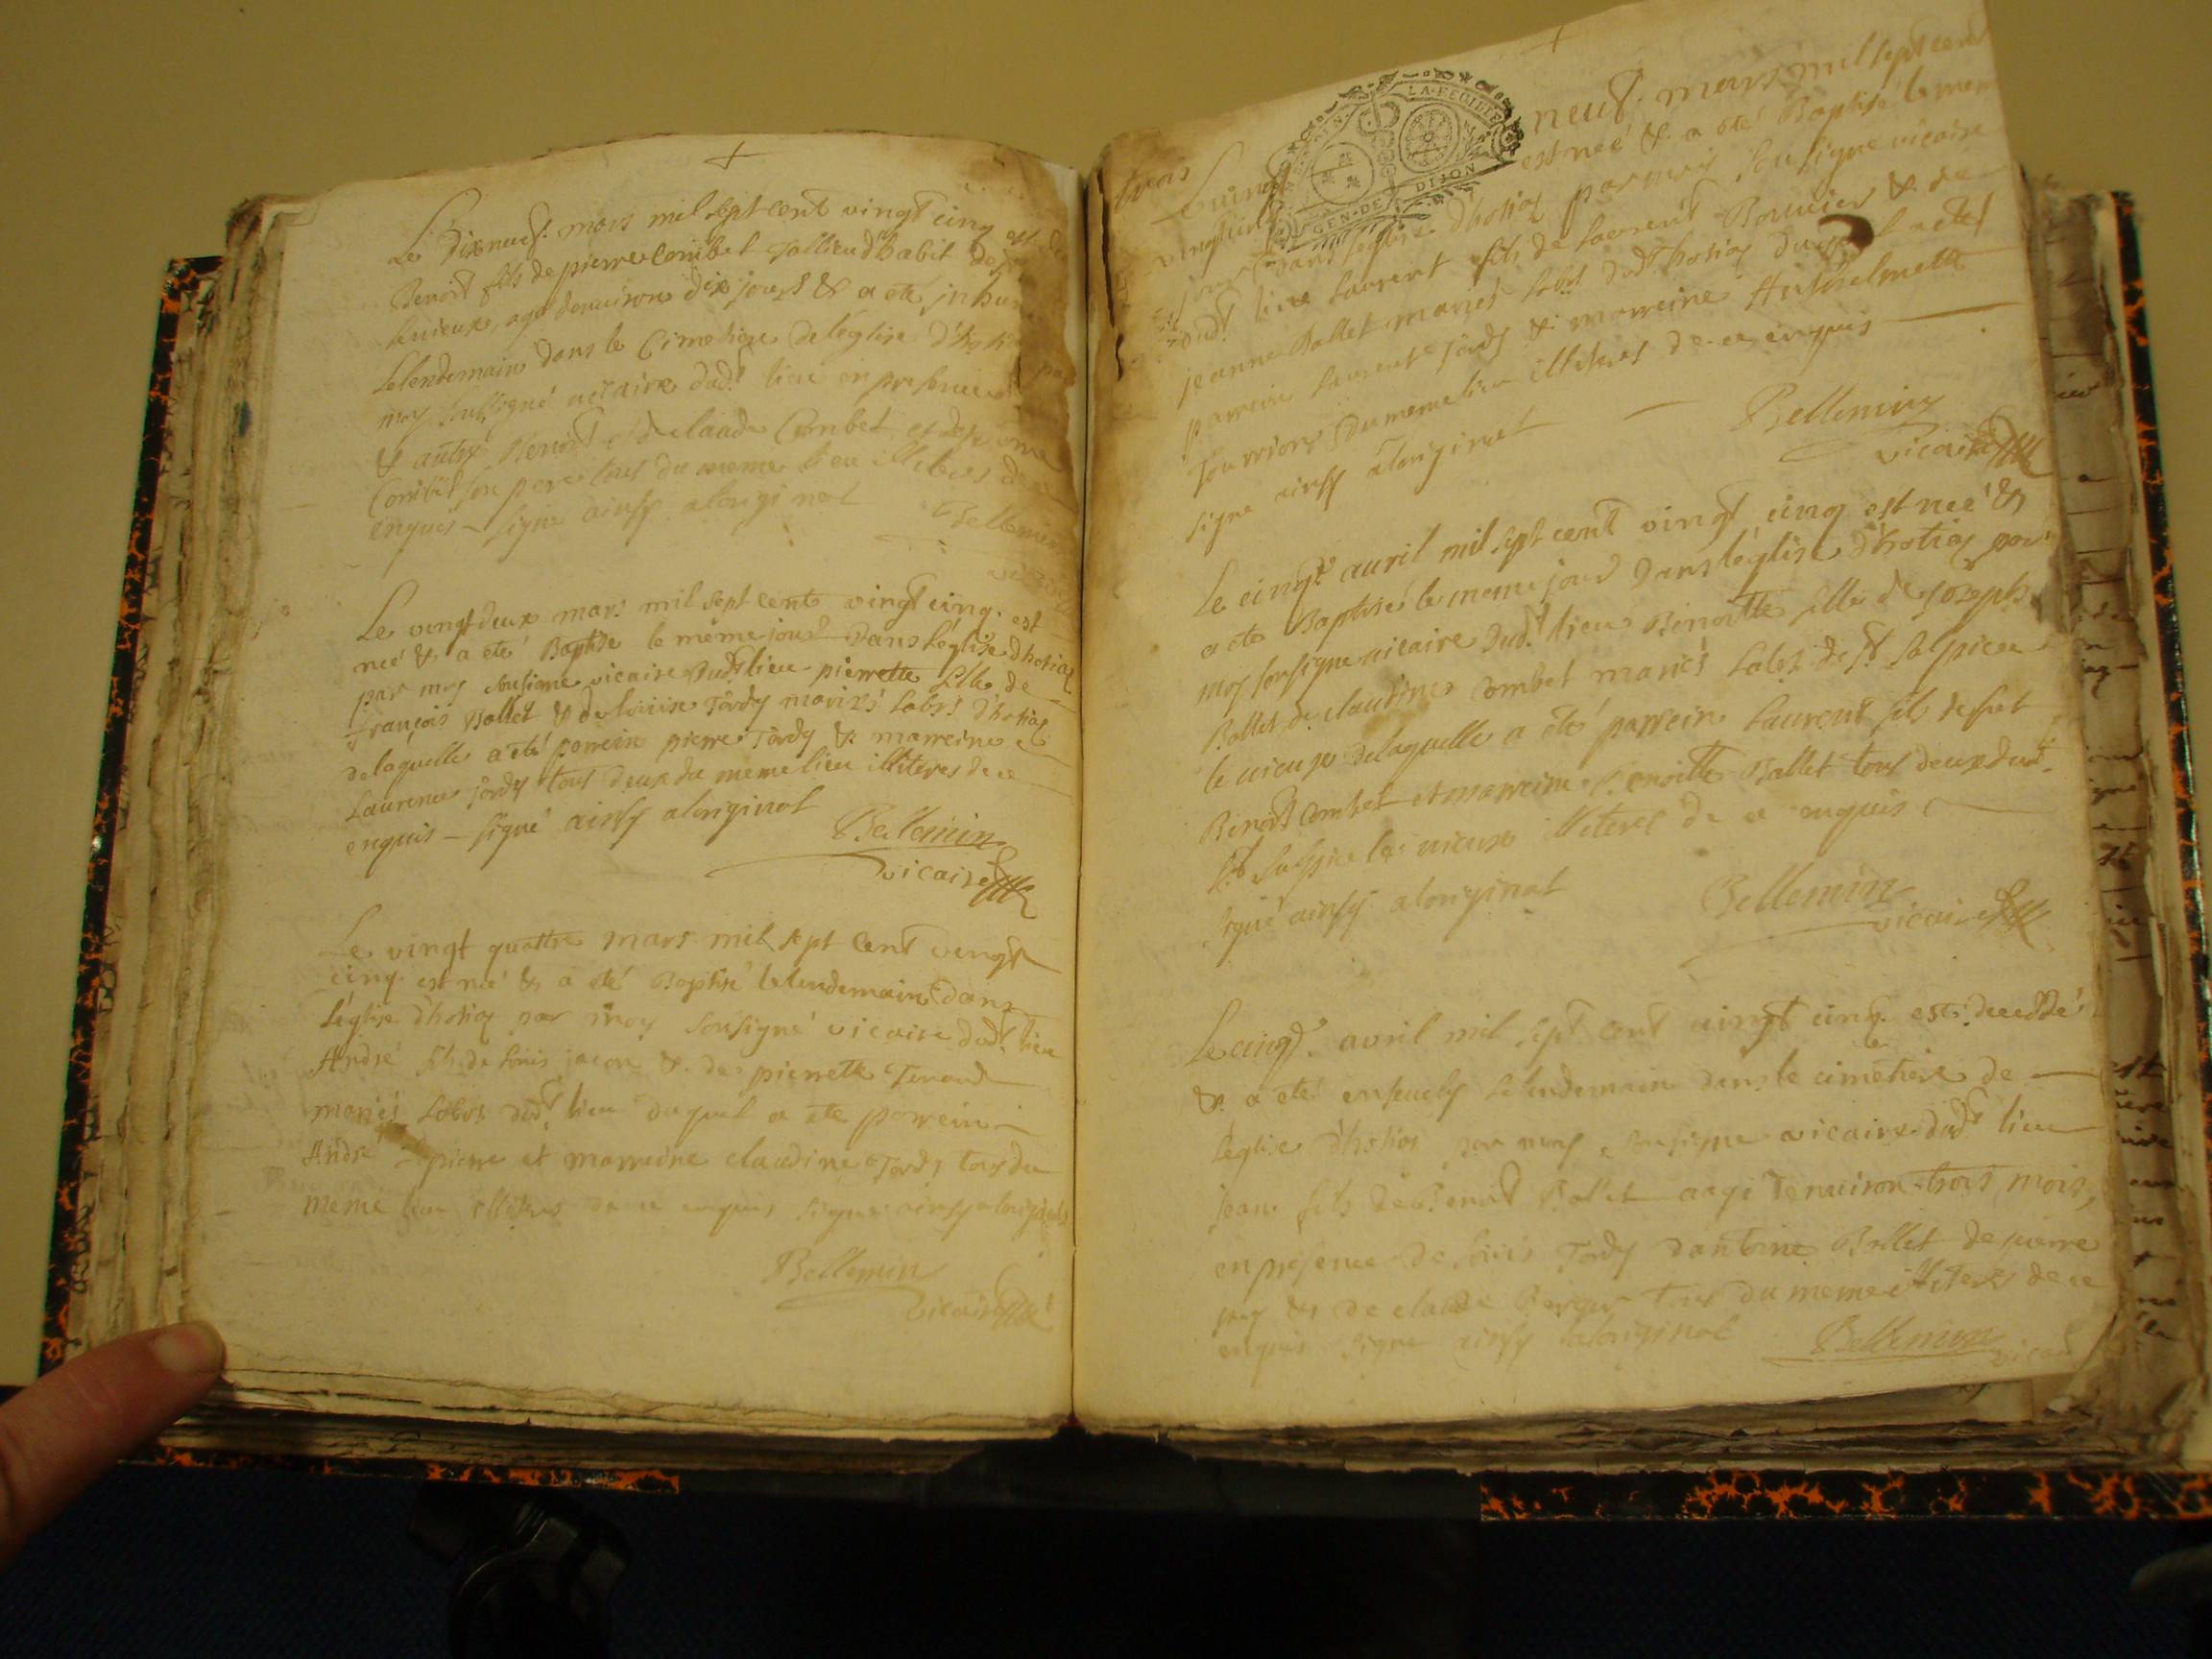 Le Dixneuf. mars mil sept cent vingt cinq est de
Benoit fils de pierre Combet Tallieu d'habit de
le vieux, agé d'environ dix jours & a eté inhum
Lelendemain dans le Cimetiere de léglise d'hotia
moy soussigné vicaire dudt lieu en presence
& autre Benoit de claude Combet et de
Combet son pere tous du meme lieu illiteres de
enquis – signe ainsy aloriginal Bellemin
vicaire
Le vingt deux mars mil sept cent vingt cinq. est
neé & a eté Baptisé le même jour Dans léglise d'hotiaz
par moy sousigne vicaire Dudt lieu pierrette fille de
françois Ballet & de louise Tardy mariés Labrs d'hotiaz
de laquelle a eté parrein pierre Tardy & marreine
Laurence jardy tous deux du meme lieu illiteres de ce
enquis – signé ainsy aloriginal
Bellemin
vicaire
Le vingt quattre mars mil sept Cent vingt
cinq. est neé & a eté Baptisé lelendemain dans
léglise d'hotiaz par moy sousigné vicaire dudt lieu
André fils de louis & de pierrette
mariés Labrs dudt lieu duquel a ete parrein
André pierre et marreine claudine Tardy tous du
meme lieu illiteres de ce enquis signe ainsy aloriginal
Bellemin
vicaire
trois
LA·FEUILLE
GEN·DE DIJON
Le vingt neuf. mars mil sept cent
vingt cinq est neé & a eté Baptisé le mem
jour Dans léglise d'hotiaz par moy sousigne vicaire
dudt lieu laurent fils de laurent Bouvier & de
jeanne Ballet mariés Labrs dudt hotiaz duquel a eté
parrein laurent jardy & marreine Anthelmette
Tournion Du meme lieu illiteres de ce enquis
signe ainsy aloriginal
Bellemin
vicaire
Le cinqe avril mil sept cent vingt cinq est neé &
a ete Baptisé le meme jour Dans léglise d'hotiaz par
moy sousigne vicaire Dudt lieu Benoitte fille de joseph
Ballet & claudine Combet mariés Labrs de st sulpice
le vieux de laquelle a eté parrein Laurent fils de fut
Benoit Combet et marreine Benoitte Ballet tous deux dudt
st sulpice le vieux illiteres de ce enquis
signé ainsy aloriginal
Bellemin
vicaire
Le cinqe. avril mil sept cent vingt cinq. est deceddé
& a eté ensevely lelendemain dans le cimetiere de
léglise d'hotiaz par moy sousigne vicaire dudt lieu
jean fils de Benoit Ballet aagé denviron trois mois,
en presence de louis Tardy dantoine Ballet de pierre
juy & de claude Berger tous du meme illiteres de ce
enquis signe ainsy aloriginal
Bellemin
vicai